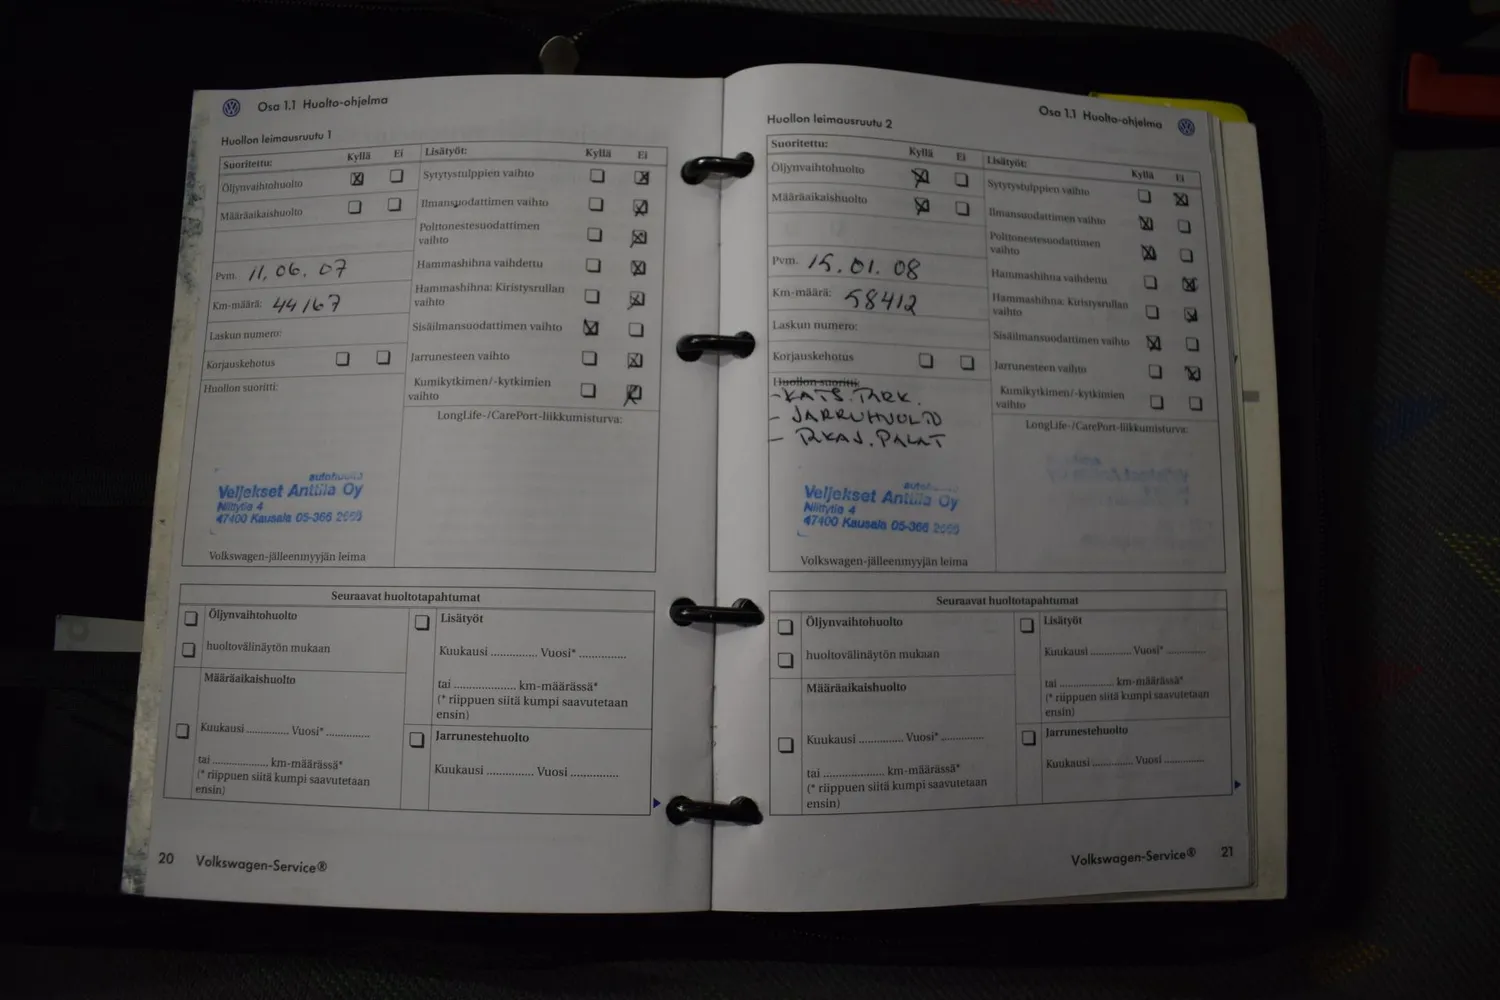 Osa 1.1 Huolto-ohjelma
Huollon leimausruutu 1
Suoritettu: Kyllä Ei
Öljynvaihtohuolto
Määräaikaishuolto
Pvm. 11.06.07
Km-määrä: 44167
Laskun numero:
Korjauskehotus
Huollon suoritti:
autohuolto
Veljekset Anttila Oy
Niittytie 4
47400 Kausala 05-366 2668
Volkswagen-jälleenmyyjän leima
Lisätyöt: Kyllä Ei
Sytytystulppien vaihto
Ilmansuodattimen vaihto
Polttonestesuodattimen
vaihto
Hammashihna vaihdettu
Hammashihna: Kiristysrullan
vaihto
Sisäilmansuodattimen vaihto
Jarrunesteen vaihto
Kumikytkimen/-kytkimien
vaihto
LongLife-/CarePort-liikkumisturva:
Seuraavat huoltotapahtumat
Öljynvaihtohuolto
huoltovälinäytön mukaan
Määräaikaishuolto
Kuukausi .............. Vuosi* ..............
tai .................. km-määrässä*
(* riippuen siitä kumpi saavutetaan
ensin)
Lisätyöt
Kuukausi .............. Vuosi* ..............
tai .................... km-määrässä*
(* riippuen siitä kumpi saavutetaan
ensin)
Jarrunestehuolto
Kuukausi .............. Vuosi ..............
20 Volkswagen-Service®
Osa 1.1 Huolto-ohjelma
Huollon leimausruutu 2
Suoritettu: Kyllä Ei
Öljynvaihtohuolto
Määräaikaishuolto
Pvm. 15.01.08
Km-määrä: 58412
Laskun numero:
Korjauskehotus
Huollon suoritti:
-KATS.TARK.
- JARRUHUOLTO
- RKAJ.PALAT
Veljekset Anttila Oy
Niittytie 4
47400 Kausala 05-366 2668
Volkswagen-jälleenmyyjän leima
Lisätyöt: Kyllä Ei
Sytytystulppien vaihto
Ilmansuodattimen vaihto
Polttonestesuodattimen
vaihto
Hammashihna vaihdettu
Hammashihna: Kiristysrullan
vaihto
Sisäilmansuodattimen vaihto
Jarrunesteen vaihto
Kumikytkimen/-kytkimien
vaihto
LongLife-/CarePort-liikkumisturva:
Seuraavat huoltotapahtumat
Öljynvaihtohuolto
huoltovälinäytön mukaan
Määräaikaishuolto
Kuukausi .............. Vuosi* ..............
tai .................... km-määrässä*
(* riippuen siitä kumpi saavutetaan
ensin)
Lisätyöt
Kuukausi ............. Vuosi* .............
tai .................. km-määrässä*
(* riippuen siitä kumpi saavutetaan
ensin)
Jarrunestehuolto
Kuukausi ............. Vuosi .............
Volkswagen-Service® 21